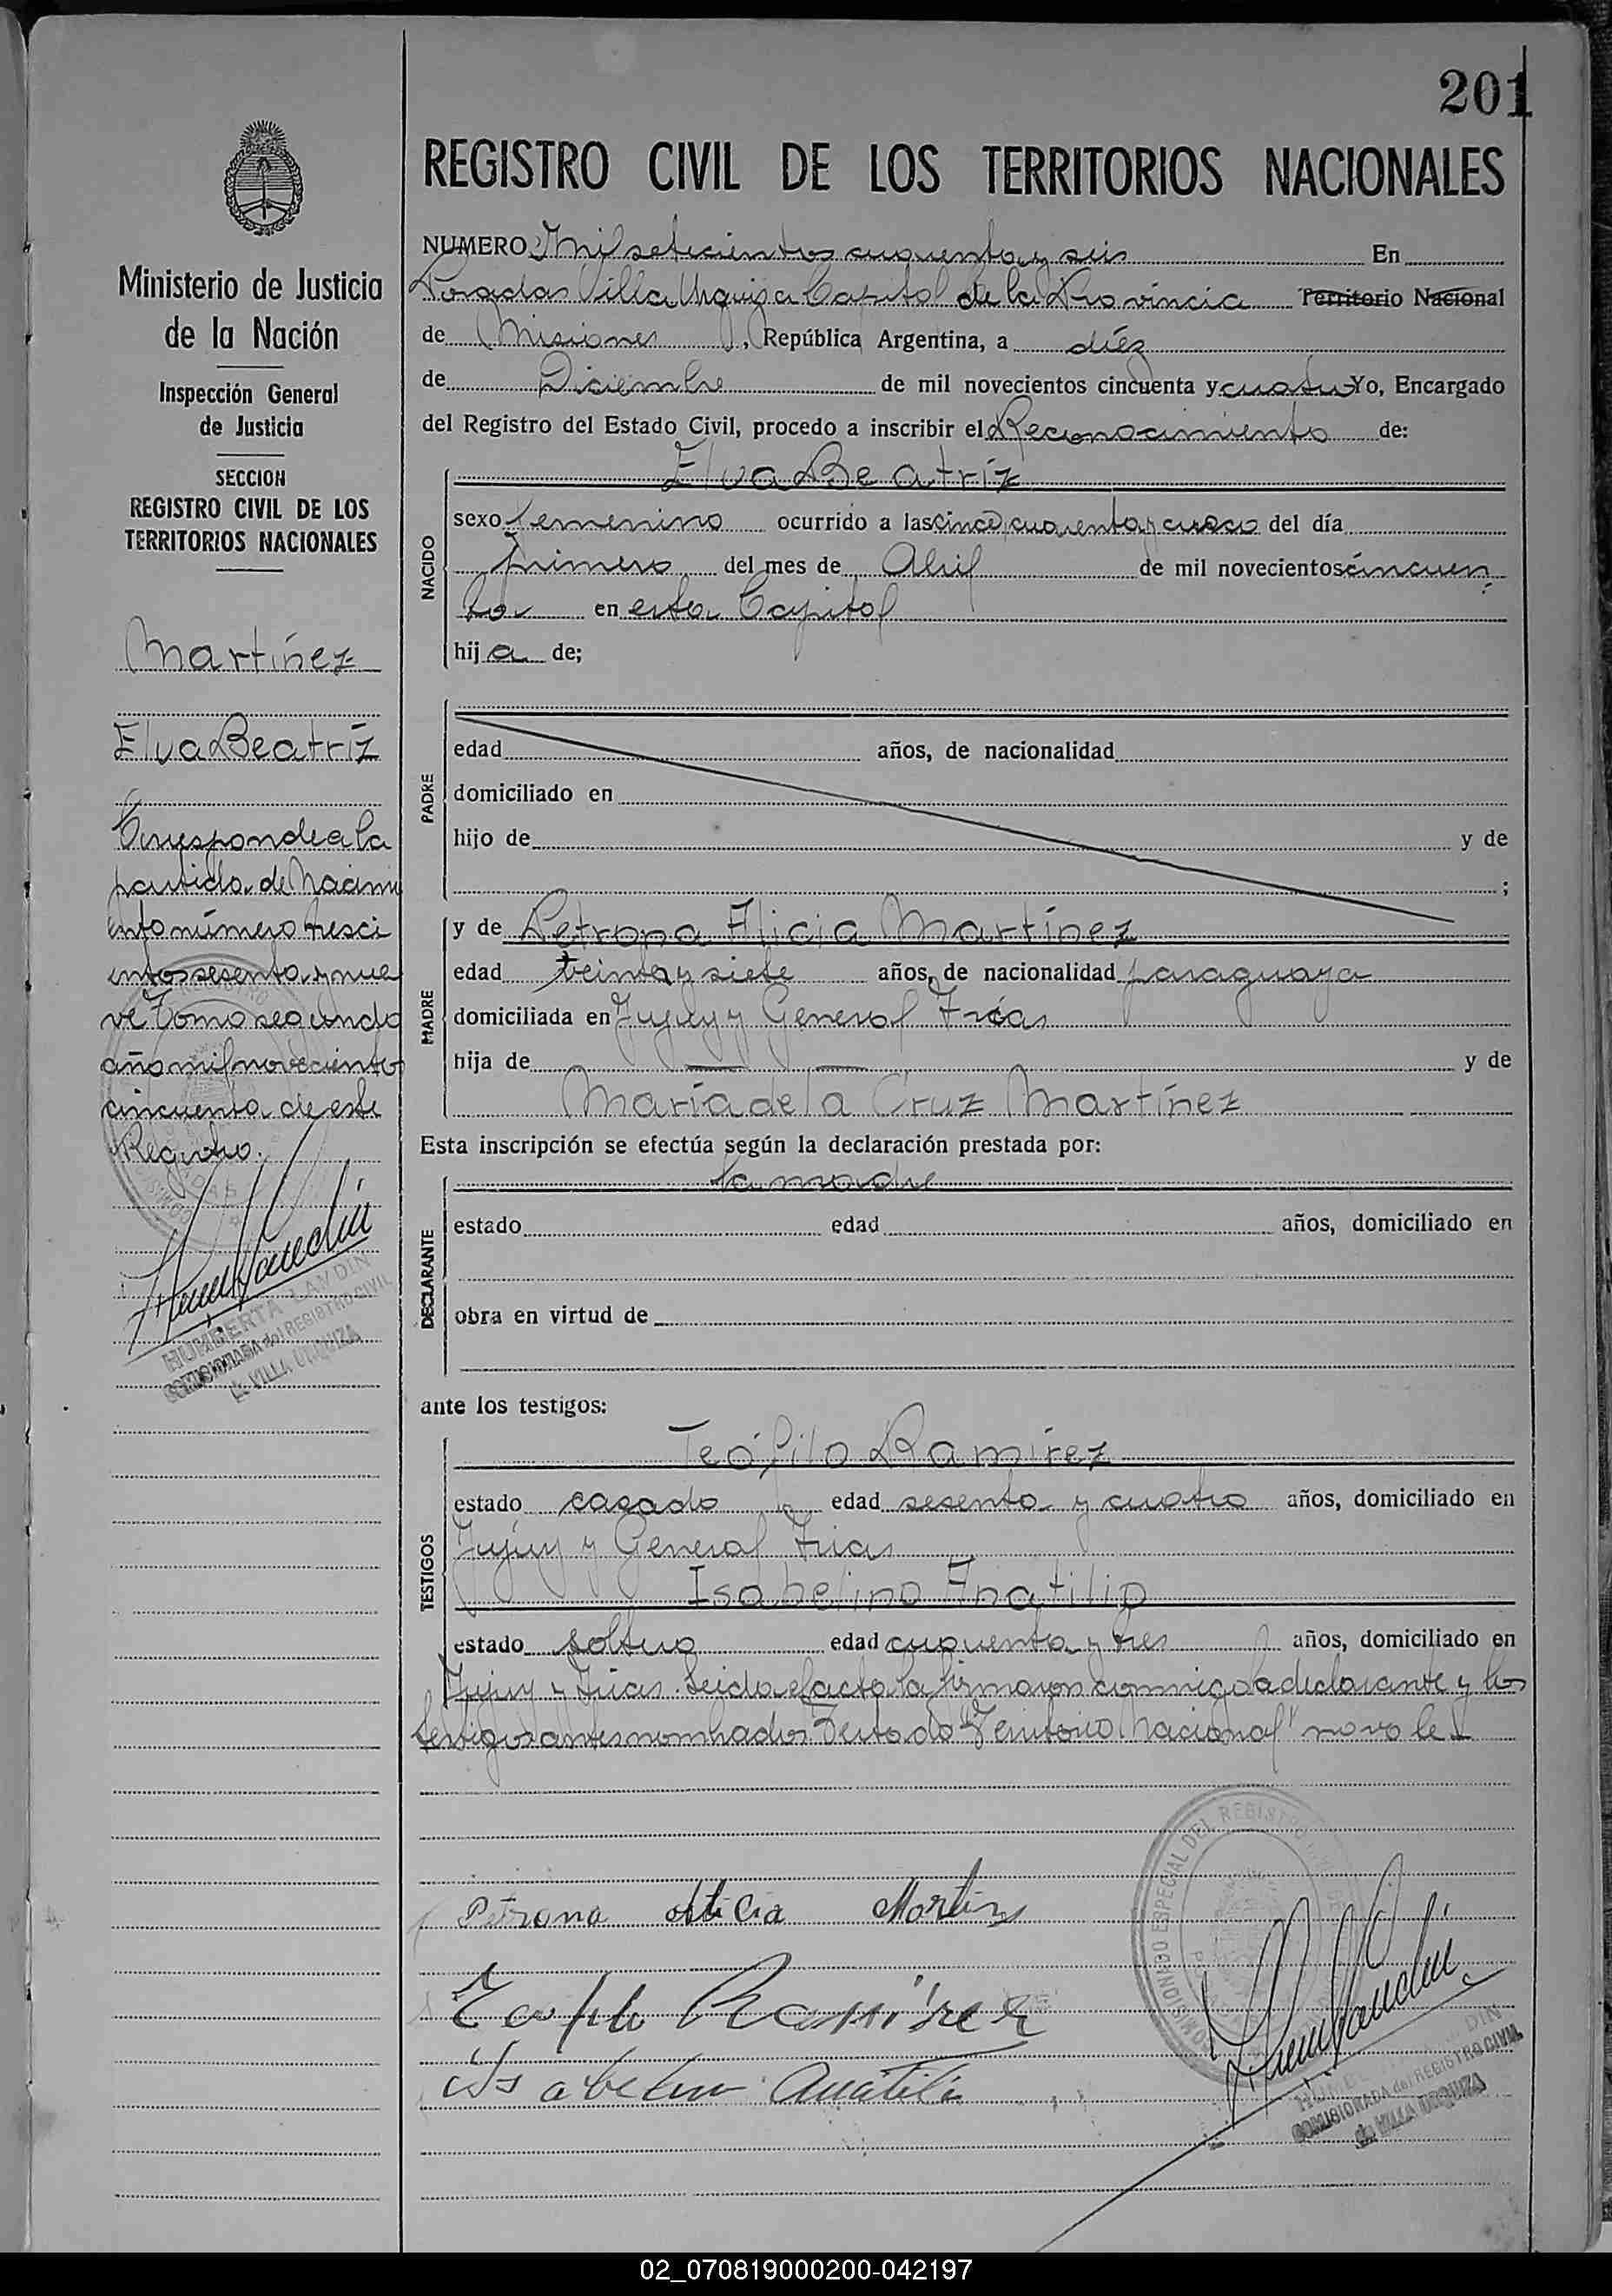 201
REGISTRO CIVIL DE LOS TERRITORIOS NACIONALES
NUMERO Mil setecientos cuarenta y seis En
Posadas Villa Urquiza Capital de la Provincia Territorio Nacional
de Misiones, República Argentina, a diéz
de Diciembre de mil novecientos cincuenta y cuatro Yo, Encargado
del Registro del Estado Civil, procedo a inscribir el Reconocimiento de:
NACIDO
Elva Beatríz
sexo femenino ocurrido a las cinco, cuarenta y cinco del día
primero del mes de Abril de mil novecientos cincuen
ta en esta Capital
hija de;
PADRE
edad años, de nacionalidad
domiciliado en
hijo de y de
;
MADRE
y de Petrona Alicia Martínez
edad treinta y siete años, de nacionalidad paraguaya
domiciliada en Jujuy y General Frías
hija de — — y de
María de la Cruz Martínez
Esta inscripción se efectúa según la declaración prestada por:
DECLARANTE
la madre
estado edad años, domiciliado en
obra en virtud de
ante los testigos:
TESTIGOS
Teófilo Ramírez
estado casado edad sesenta y cuatro años, domiciliado en
Jujuy y General Frias
Isabelino Anatilio
estado soltero edad cuarenta y tres años, domiciliado en
Jujuy y Frias. Leida el acta la firmaron conmigo la declarante y los
testigos antes nombrados. Testado "Territorio Nacional" no vale
Petrona Alicia Martinez
Teofilo Ramirez
Isabelino Anatilio
COMISIONADO ESPECIAL DEL REGISTRO
COMISIONADA del REGISTRO CIVIL
de VILLA URQUIZA
Ministerio de Justicia
de la Nación
Inspección General
de Justicia
SECCION
REGISTRO CIVIL DE LOS
TERRITORIOS NACIONALES
Martínez
Elva Beatríz
Corresponde a la
partida de Nacimi
ento número tresci
entos sesenta y nue
ve Tomo segundo
año mil novecientos
cincuenta de este
Registro.
HUMBERTA LANDIN
COMISIONADA del REGISTRO CIVIL
de VILLA URQUIZA
02_070819000200-042197